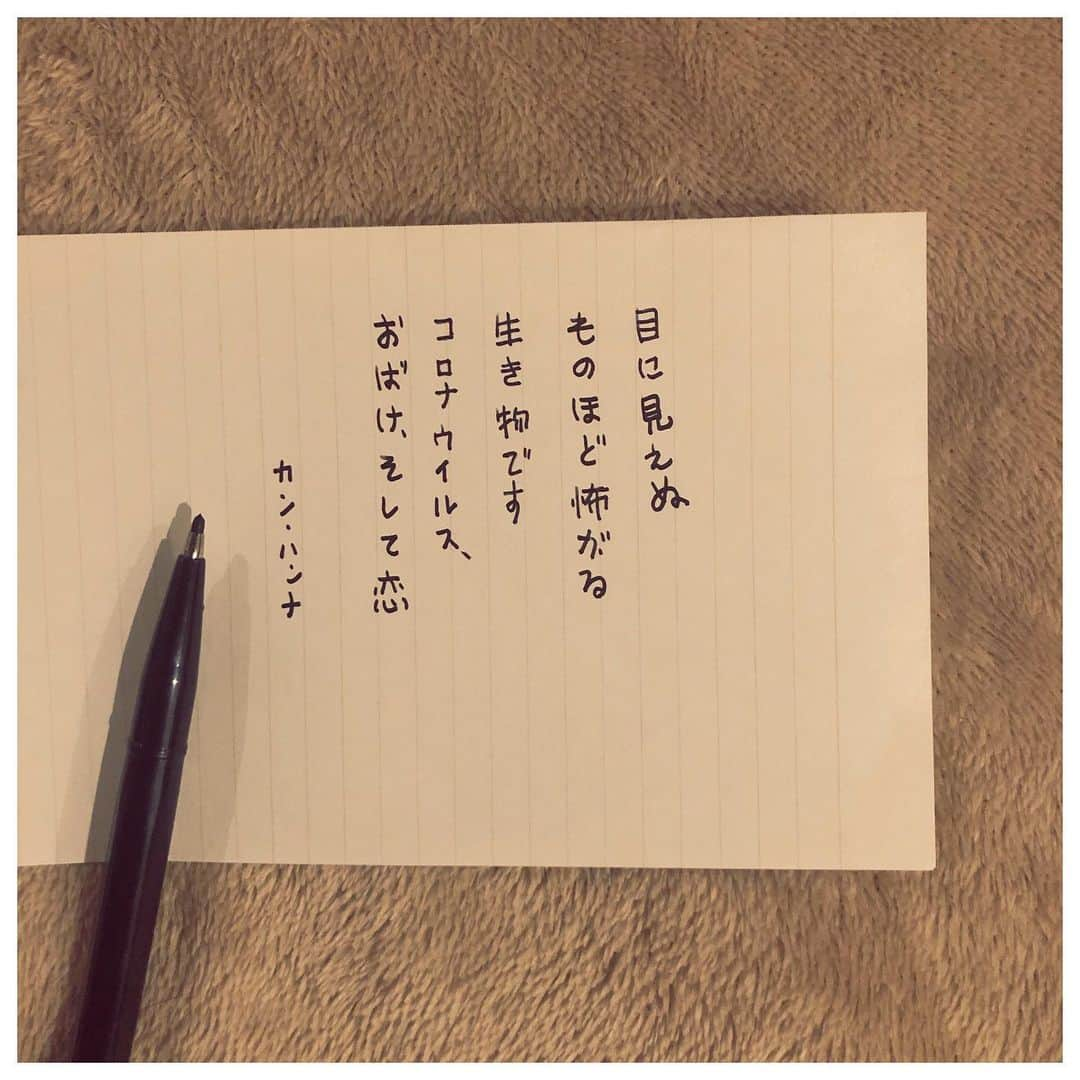 目に見えぬ
ものほど怖がる
生き物です
コロナウイルス、
おばけ、そして恋
カン・ハンナ